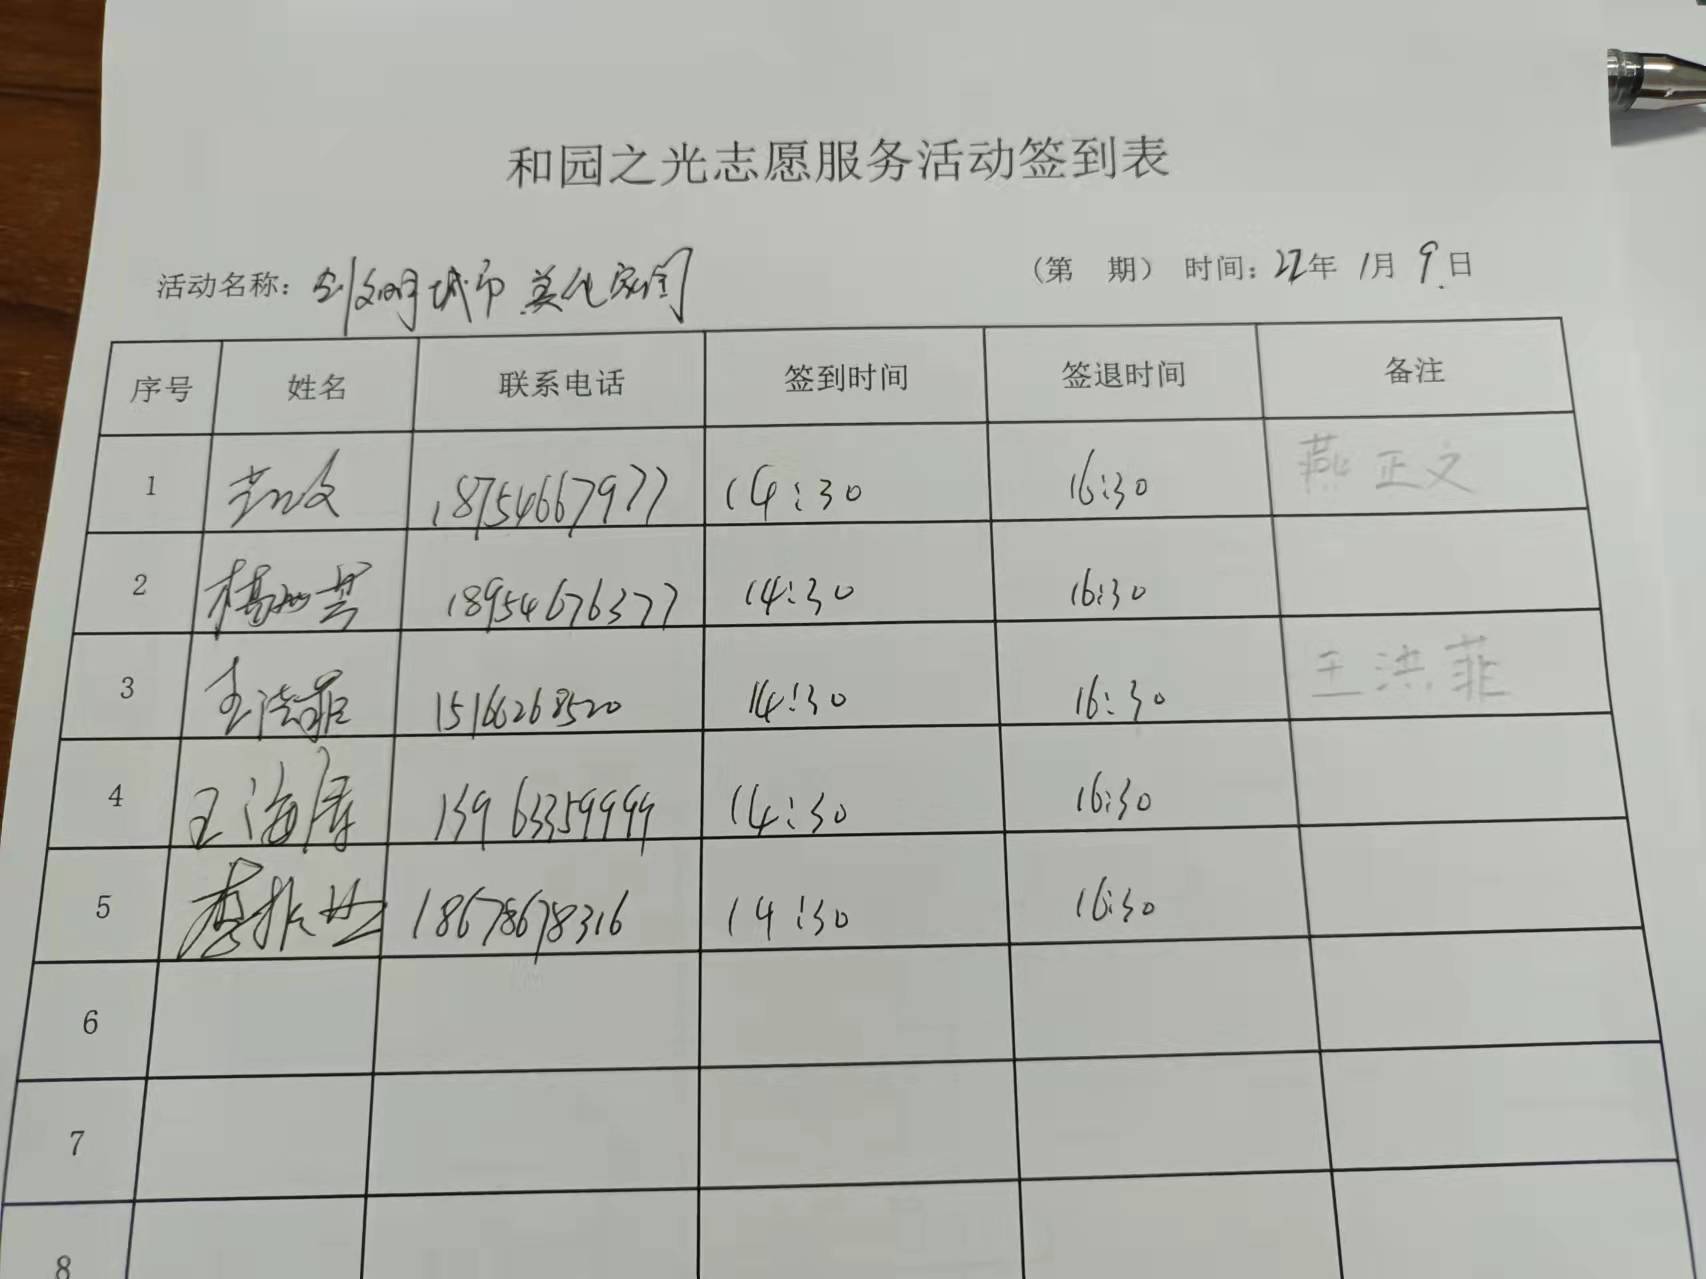 和园之光志愿服务活动签到表
活动名称：创文明城市 美化家园 （第 期） 时间：22年 1月 9日
序号 姓名 联系电话 签到时间 签退时间 备注
1 18754667977 14:30 16:30 燕正文
2 杨 18954676377 14:30 16:30
3 王洪菲 15166268520 14:30 16:30 王洪菲
4 王海 13963359999 14:30 16:30
5 18678678316 14:30 16:30
6
7
8